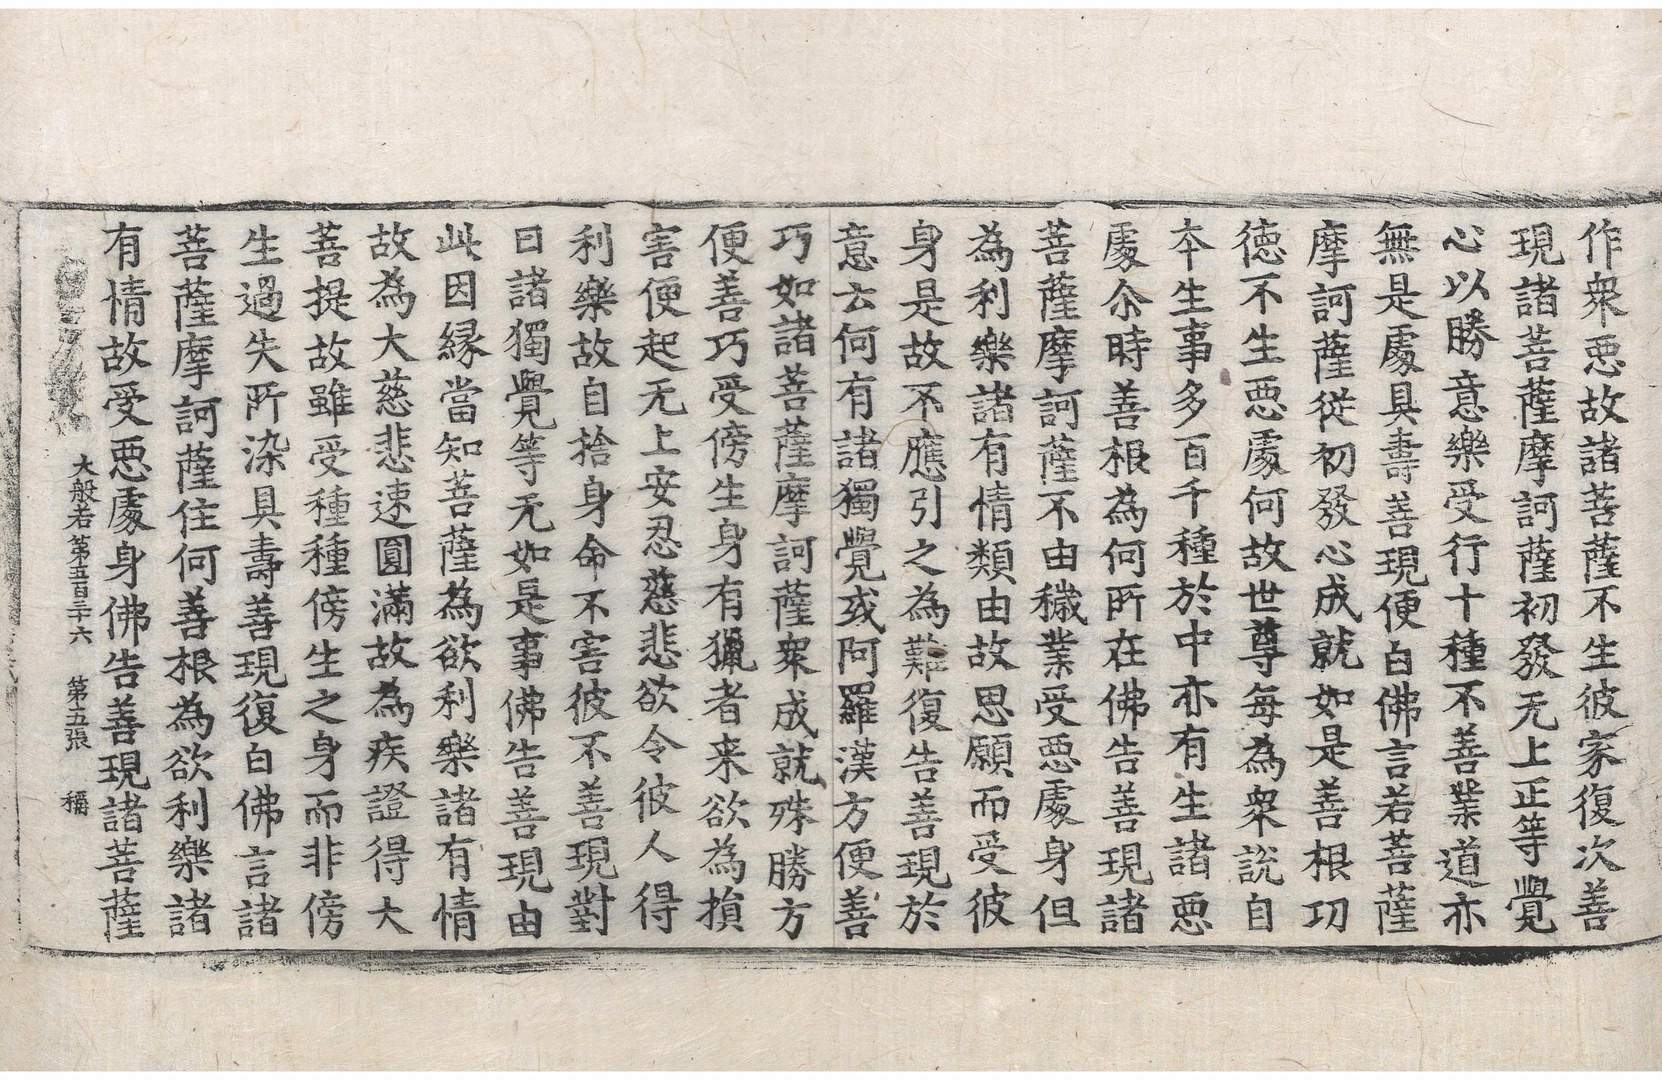 作衆惡故諸菩薩不生彼家復次善
現諸菩薩摩訶薩初發无上正等覺
心以勝意樂受行十種不善業道亦
無是處具壽善現便白佛言若菩薩
摩訶薩從初發心成就如是善根功
德不生惡處何故世尊每為衆說自
本生事多百千種於中亦有生諸惡
處尒時善根為何所在佛告善現諸
菩薩摩訶薩不由穢業受惡處身但
為利樂諸有情類由故思願而受彼
身是故不應引之為難復告善現於
意云何有諸獨覺或阿羅漢方便善
巧如諸菩薩摩訶薩衆成就殊勝方
便善巧受傍生身有獵者来欲為損
害便起无上安忍慈悲欲令彼人得
利樂故自捨身命不害彼不善現對
曰諸獨覺等无如是事佛告善現由
此因緣當知菩薩為欲利樂諸有情
故為大慈悲速圓滿故為疾證得大
菩提故雖受種種傍生之身而非傍
生過失所染具壽善現復白佛言諸
菩薩摩訶薩住何善根為欲利樂諸
有情故受惡處身佛告善現諸菩薩
大般若第五百三十六 第十五張 稱